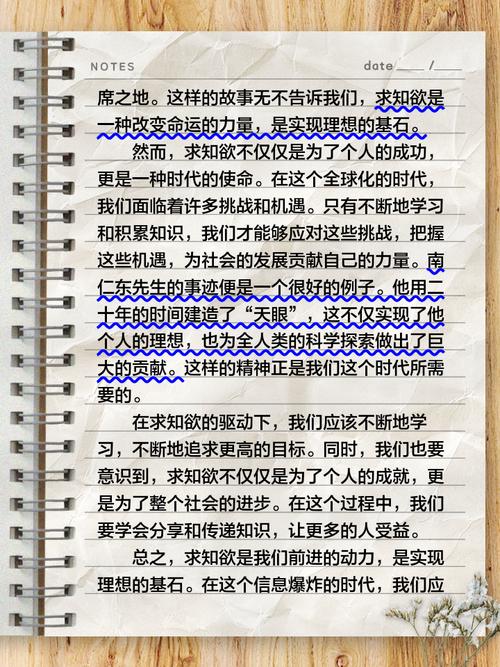 NOTES
date ____ / ____
席之地。这样的故事无不告诉我们，求知欲是
一种改变命运的力量，是实现理想的基石。
然而，求知欲不仅仅是为了个人的成功，
更是一种时代的使命。在这个全球化的时代，
我们面临着许多挑战和机遇。只有不断地学习
和积累知识，我们才能够应对这些挑战，把握
这些机遇，为社会的发展贡献自己的力量。南
仁东先生的事迹便是一个很好的例子。他用二
十年的时间建造了“天眼”，这不仅实现了他
个人的理想，也为全人类的科学探索做出了巨
大的贡献。这样的精神正是我们这个时代所需
要的。
在求知欲的驱动下，我们应该不断地学
习，不断地追求更高的目标。同时，我们也要
意识到，求知欲不仅仅是为了个人的成就，更
是为了整个社会的进步。在这个过程中，我们
要学会分享和传递知识，让更多的人受益。
总之，求知欲是我们前进的动力，是实现
理想的基石。在这个信息爆炸的时代，我们应